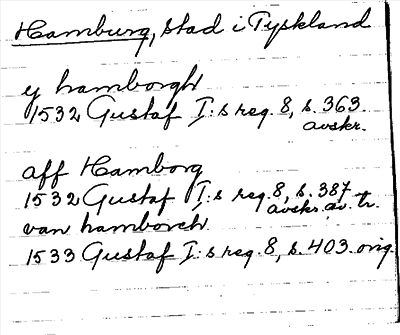 Hamburg, stad i Tyskland
y hamborgh
1532 Gustaf I:s reg. 8, s. 363.
avskr.
aff Hamborg
1532 Gustaf I:s reg. 8, s. 387
avskr. av tr.
van hamborch
1533 Gustaf I:s reg. 8, s. 403. orig.